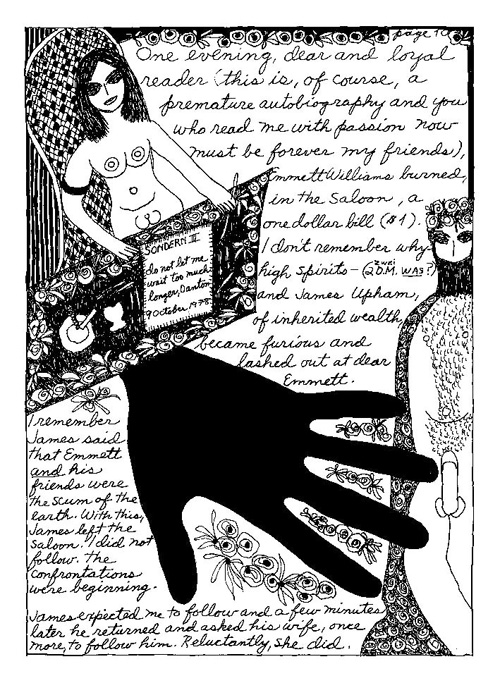 page 10
One evening, dear and loyal
reader (this is, of course, a
premature autobiography and you
who read me with passion now
must be forever my friends),
Emmett Williams burned,
in the Saloon, a
one dollar bill ($1).
I don't remember why-
high spirits- (2 D.M. WAS?)
zwei
and James Upham,
of inherited wealth,
became furious and
lashed out at dear
Emmett.
SONDERN II
do not let me
wait too much
longer, Danton
9 October, 1978
I remember
James said
that Emmett
and his
friends were
the scum of the
earth. With this,
James left the
Saloon. I did not
follow. The
confrontations
were beginning.
James expected me to follow and a few minutes
later he returned and asked his wife, once
more, to follow him. Reluctantly, she did.